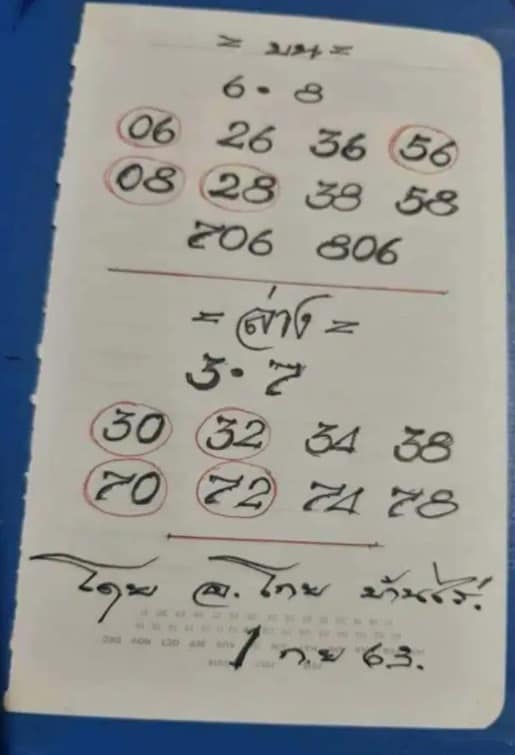 = บน =
6 • 8
06 26 36 56
08 28 38 58
706 806
= ล่าง =
3 • 7
30 32 34 38
70 72 74 78
โดย อ. ไทย บ้านไร่.
1 ก.ย 63.